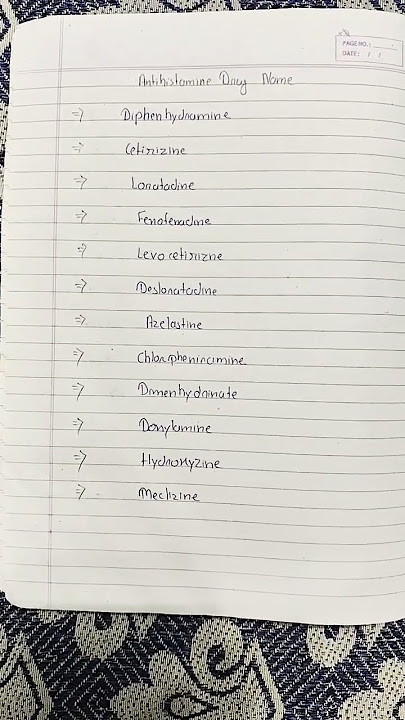 PAGE NO.:
DATE: / /
Antihistamine Drug Name
=> Diphenhydramine
=> Cetirizine
=> Loratadine
=> Fenofenadine
=> Levocetirizne
=> Desloratadine
=> Azelastine
=> Chlorpheniramine
=> Dimenhydrinate
=> Doxylamine
=> Hydroxyzine
=> Meclizine